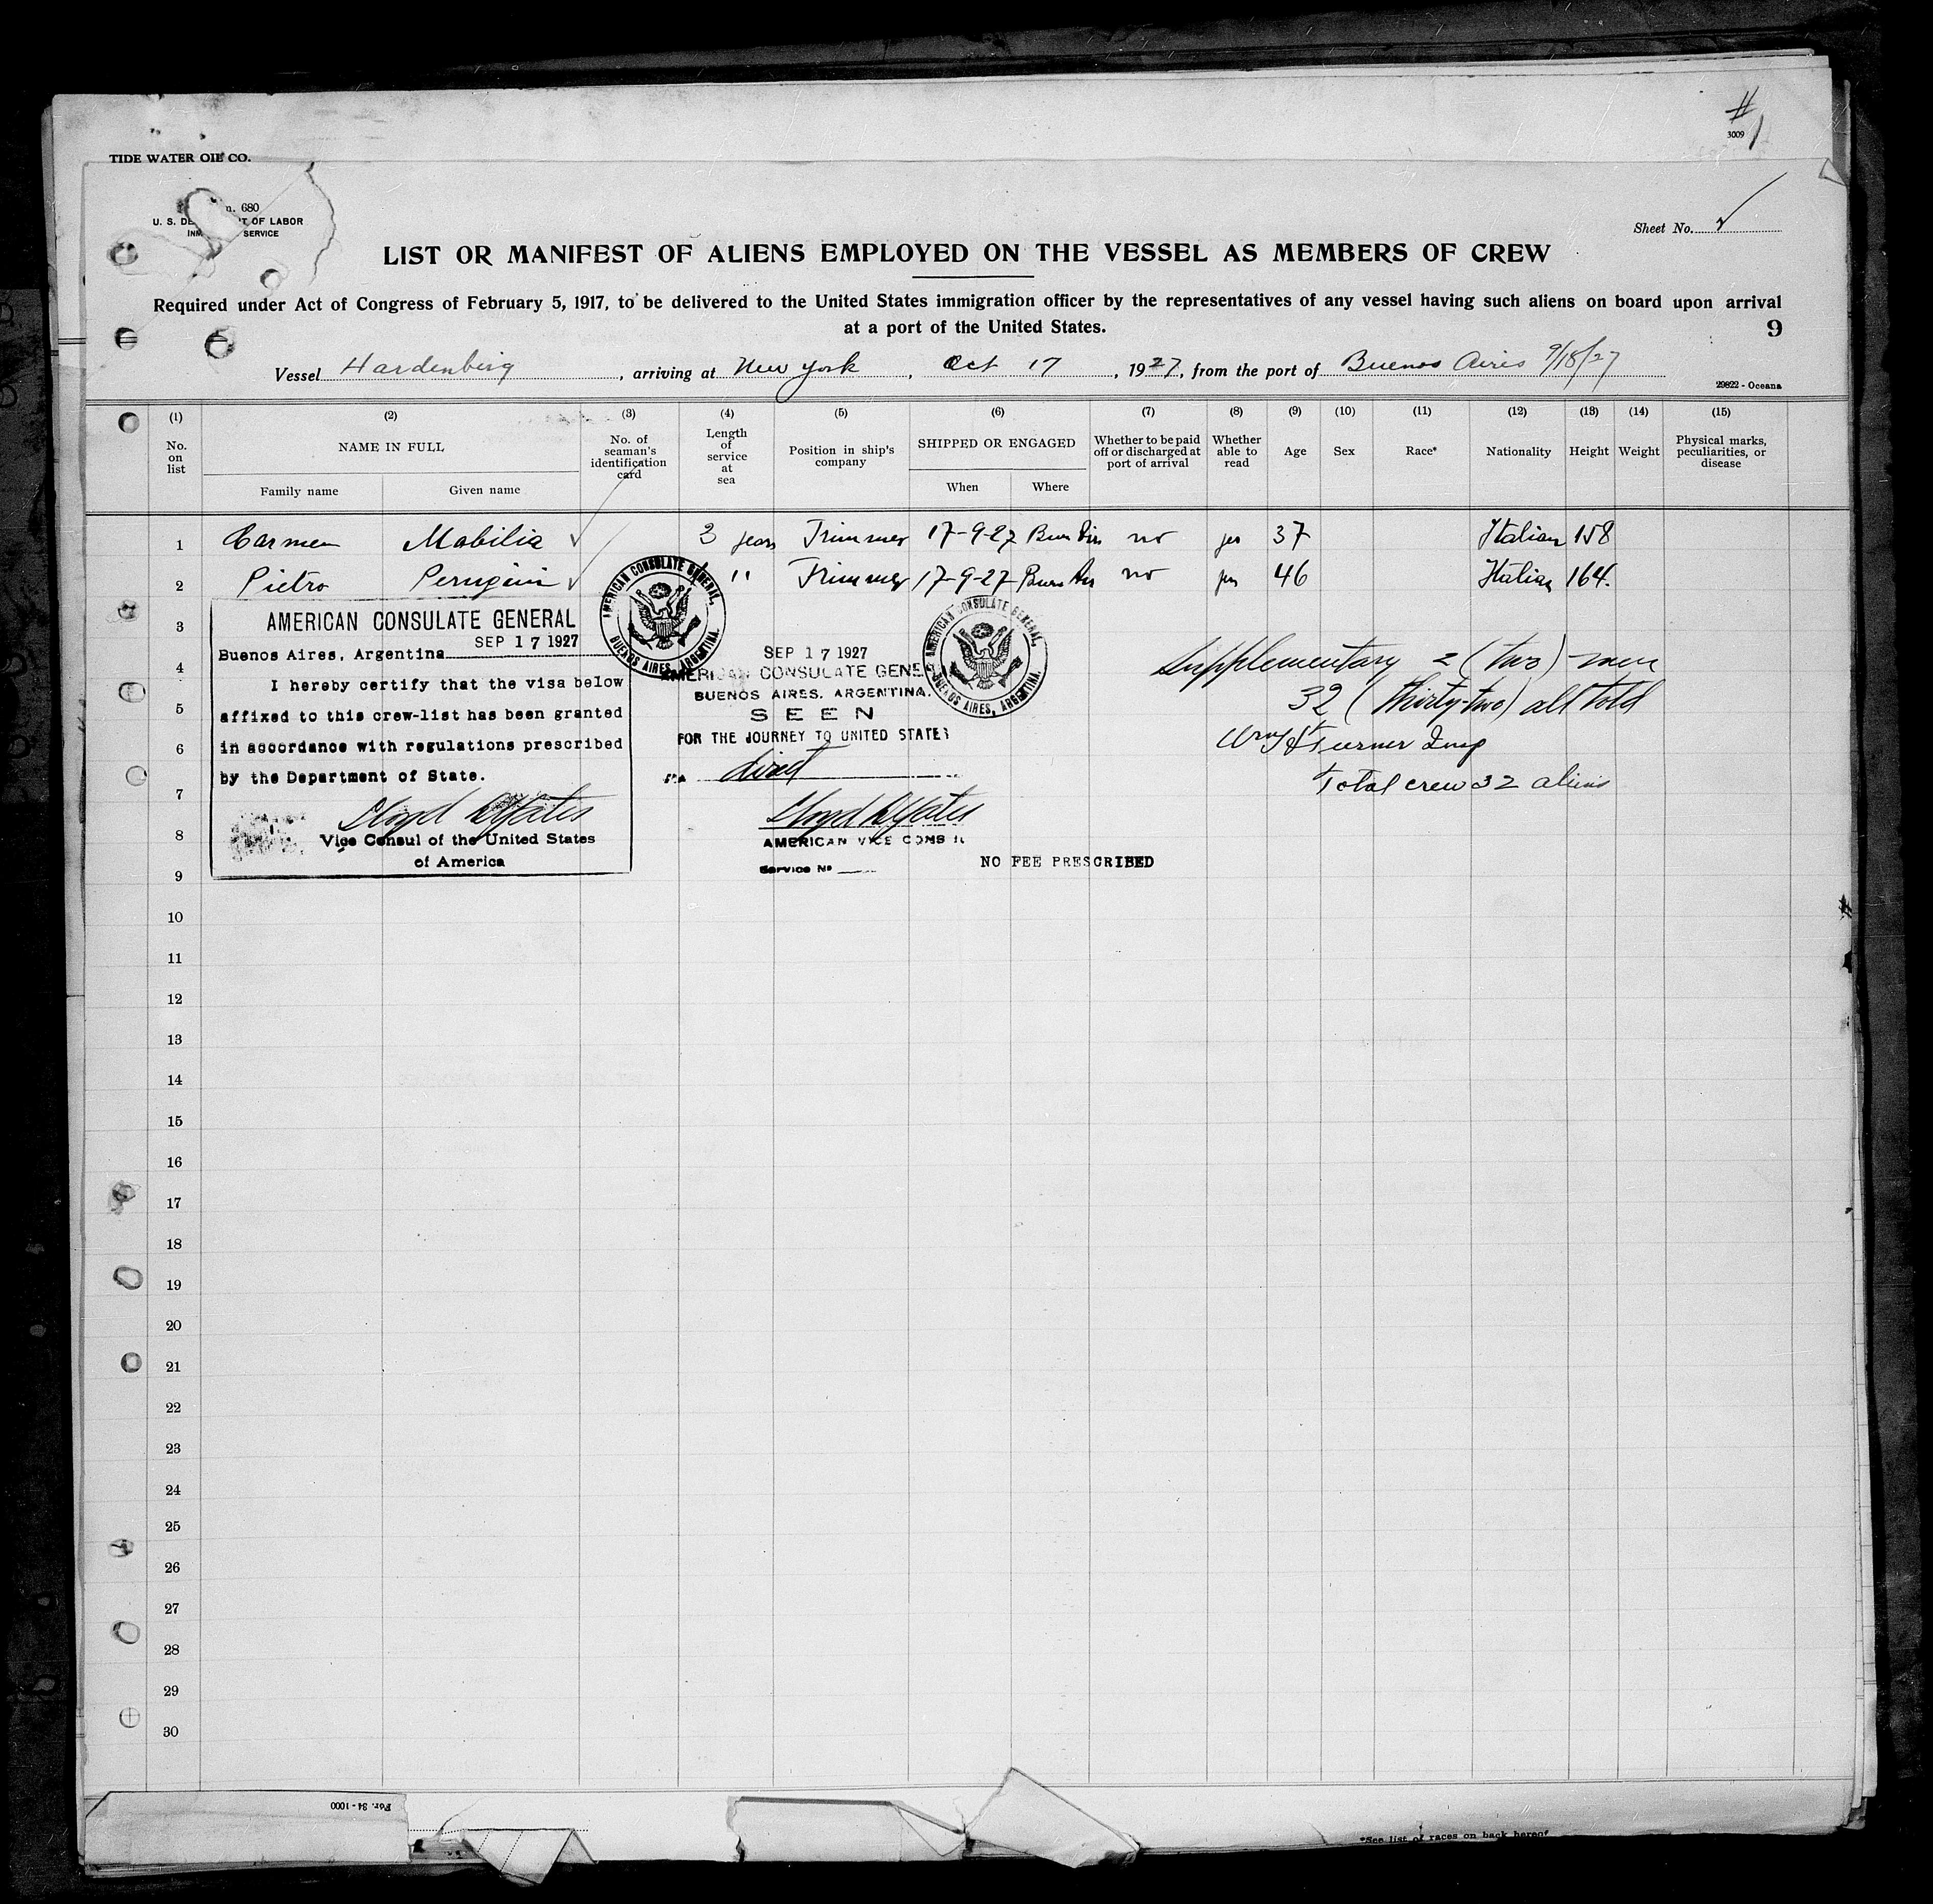 # 1
3009
TIDE WATER OIL CO.
680
U. S. DE T OF LABOR
SERVICE
Sheet No.
LIST OR MANIFEST OF ALIENS EMPLOYED ON THE VESSEL AS MEMBERS OF CREW
Required under Act of Congress of February 5, 1917, to be delivered to the United States immigration officer by the representatives of any vessel having such aliens on board upon arrival
at a port of the United States.
9
Vessel Hardenberg, arriving at New York, Oct 17, 1927, from the port of Buenos Aires 9/18/27
29822 - Oceana
(1) (2) (3) (4) (5) (6) (7) (8) (9) (10) (11) (12) (13) (14) (15)
No. on list
NAME IN FULL
Family name
Given name
No. of seaman's identification card
Length of service at sea
Position in ship's company
SHIPPED OR ENGAGED
When
Where
Whether to be paid off or discharged at port of arrival
Whether able to read
Age
Sex
Race*
Nationality
Height
Weight
Physical marks, peculiarities, or disease
1 Carmen Mobilia 3 years Trimmer 17-9-27 no yes 37 Italian 158
2 Pietro Perugini " Trimmer 17-9-27 no yes 46 Italian 164.
3
4
5
6
7
8
9
AMERICAN CONSULATE GENERAL
SEP 17 1927
Buenos Aires, Argentina
I hereby certify that the visa below
affixed to this crew-list has been granted
in accordance with regulations prescribed
by the Department of State.
Lloyd D Yates
Vice Consul of the United States
of America
AMERICAN CONSULATE GENERAL, BUENOS AIRES, ARGENTINA.
SEP 17 1927
AMERICAN CONSULATE GENE
BUENOS AIRES, ARGENTINA.
SEEN
FOR THE JOURNEY TO UNITED STATES
direct
Lloyd D Yates
AMERICAN VICE CONSUL
Service No
AMERICAN CONSULATE GENERAL, BUENOS AIRES, ARGENTINA.
NO FEE PRESCRIBED
Supplementary 2 (two) men
32 (thirty-two) all told
Wm H Turner Insp
Total crew 32 aliens
10
11
12
13
14
15
16
17
18
19
20
21
22
23
24
25
26
27
28
29
30
For. 34-1000
*See list of races on back hereof